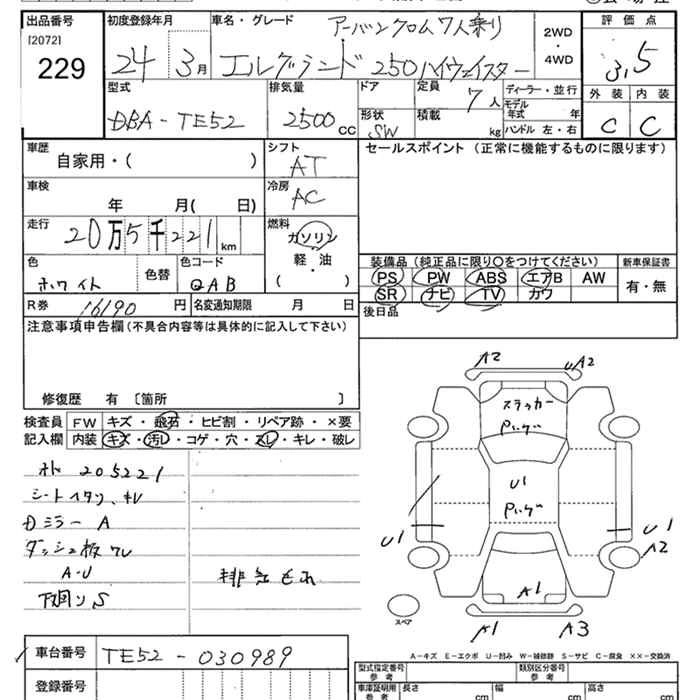 出品番号
[2072]
229
初度登録年月
24 3月
車名・グレード
アーバンクロム7人乗り
エルグランド250ハイウェイスター
2WD
・
4WD
評価点
3.5
外装 内装
C C
型式
DBA-TE52
排気量
2500 CC
ドア
形状
SW
定員
7人
積載
kg
ディーラー・並行
モデル
年式 年
ハンドル 左・右
車歴
自家用・( )
シフト
AT
車検
年 月( 日)
冷房
AC
走行
20万5千221km
燃料
ガソリン
軽・油
( )
色
ホワイト
色替
色コード
QAB
R券
16190円
名変通知期限 月 日
セールスポイント(正常に機能するものに限ります)
装備品(純正品に限り○をつけてください)
PS PW ABS エアB AW
SR ナビ TV カワ
新車保証書
有・無
後日品
注意事項申告欄(不具合内容等は具体的に記入して下さい)
修復歴 有 〔箇所 〕
検査員
記入欄
FW キズ・飛石・ヒビ割・リペア跡・×要
内装 キズ・汚レ・コゲ・穴・スレ・キレ・破レ
205221
シートヘタリ、キレ
Dミラー A
ダッシュ板ワレ
A-U
下回り S
排気もれ
A2
UA2
ステッカー
U1
U1
U1
A2
A1
A1
A3
スペア
A-キズ E-エクボ U-凹み W-補修跡 S-サビ C-腐食 ××-交換済
車台番号
TE52-030989
登録番号
型式指定番号
参考
類別区分番号
参考
車庫証明用
参考
長さ cm
幅 cm
高さ cm